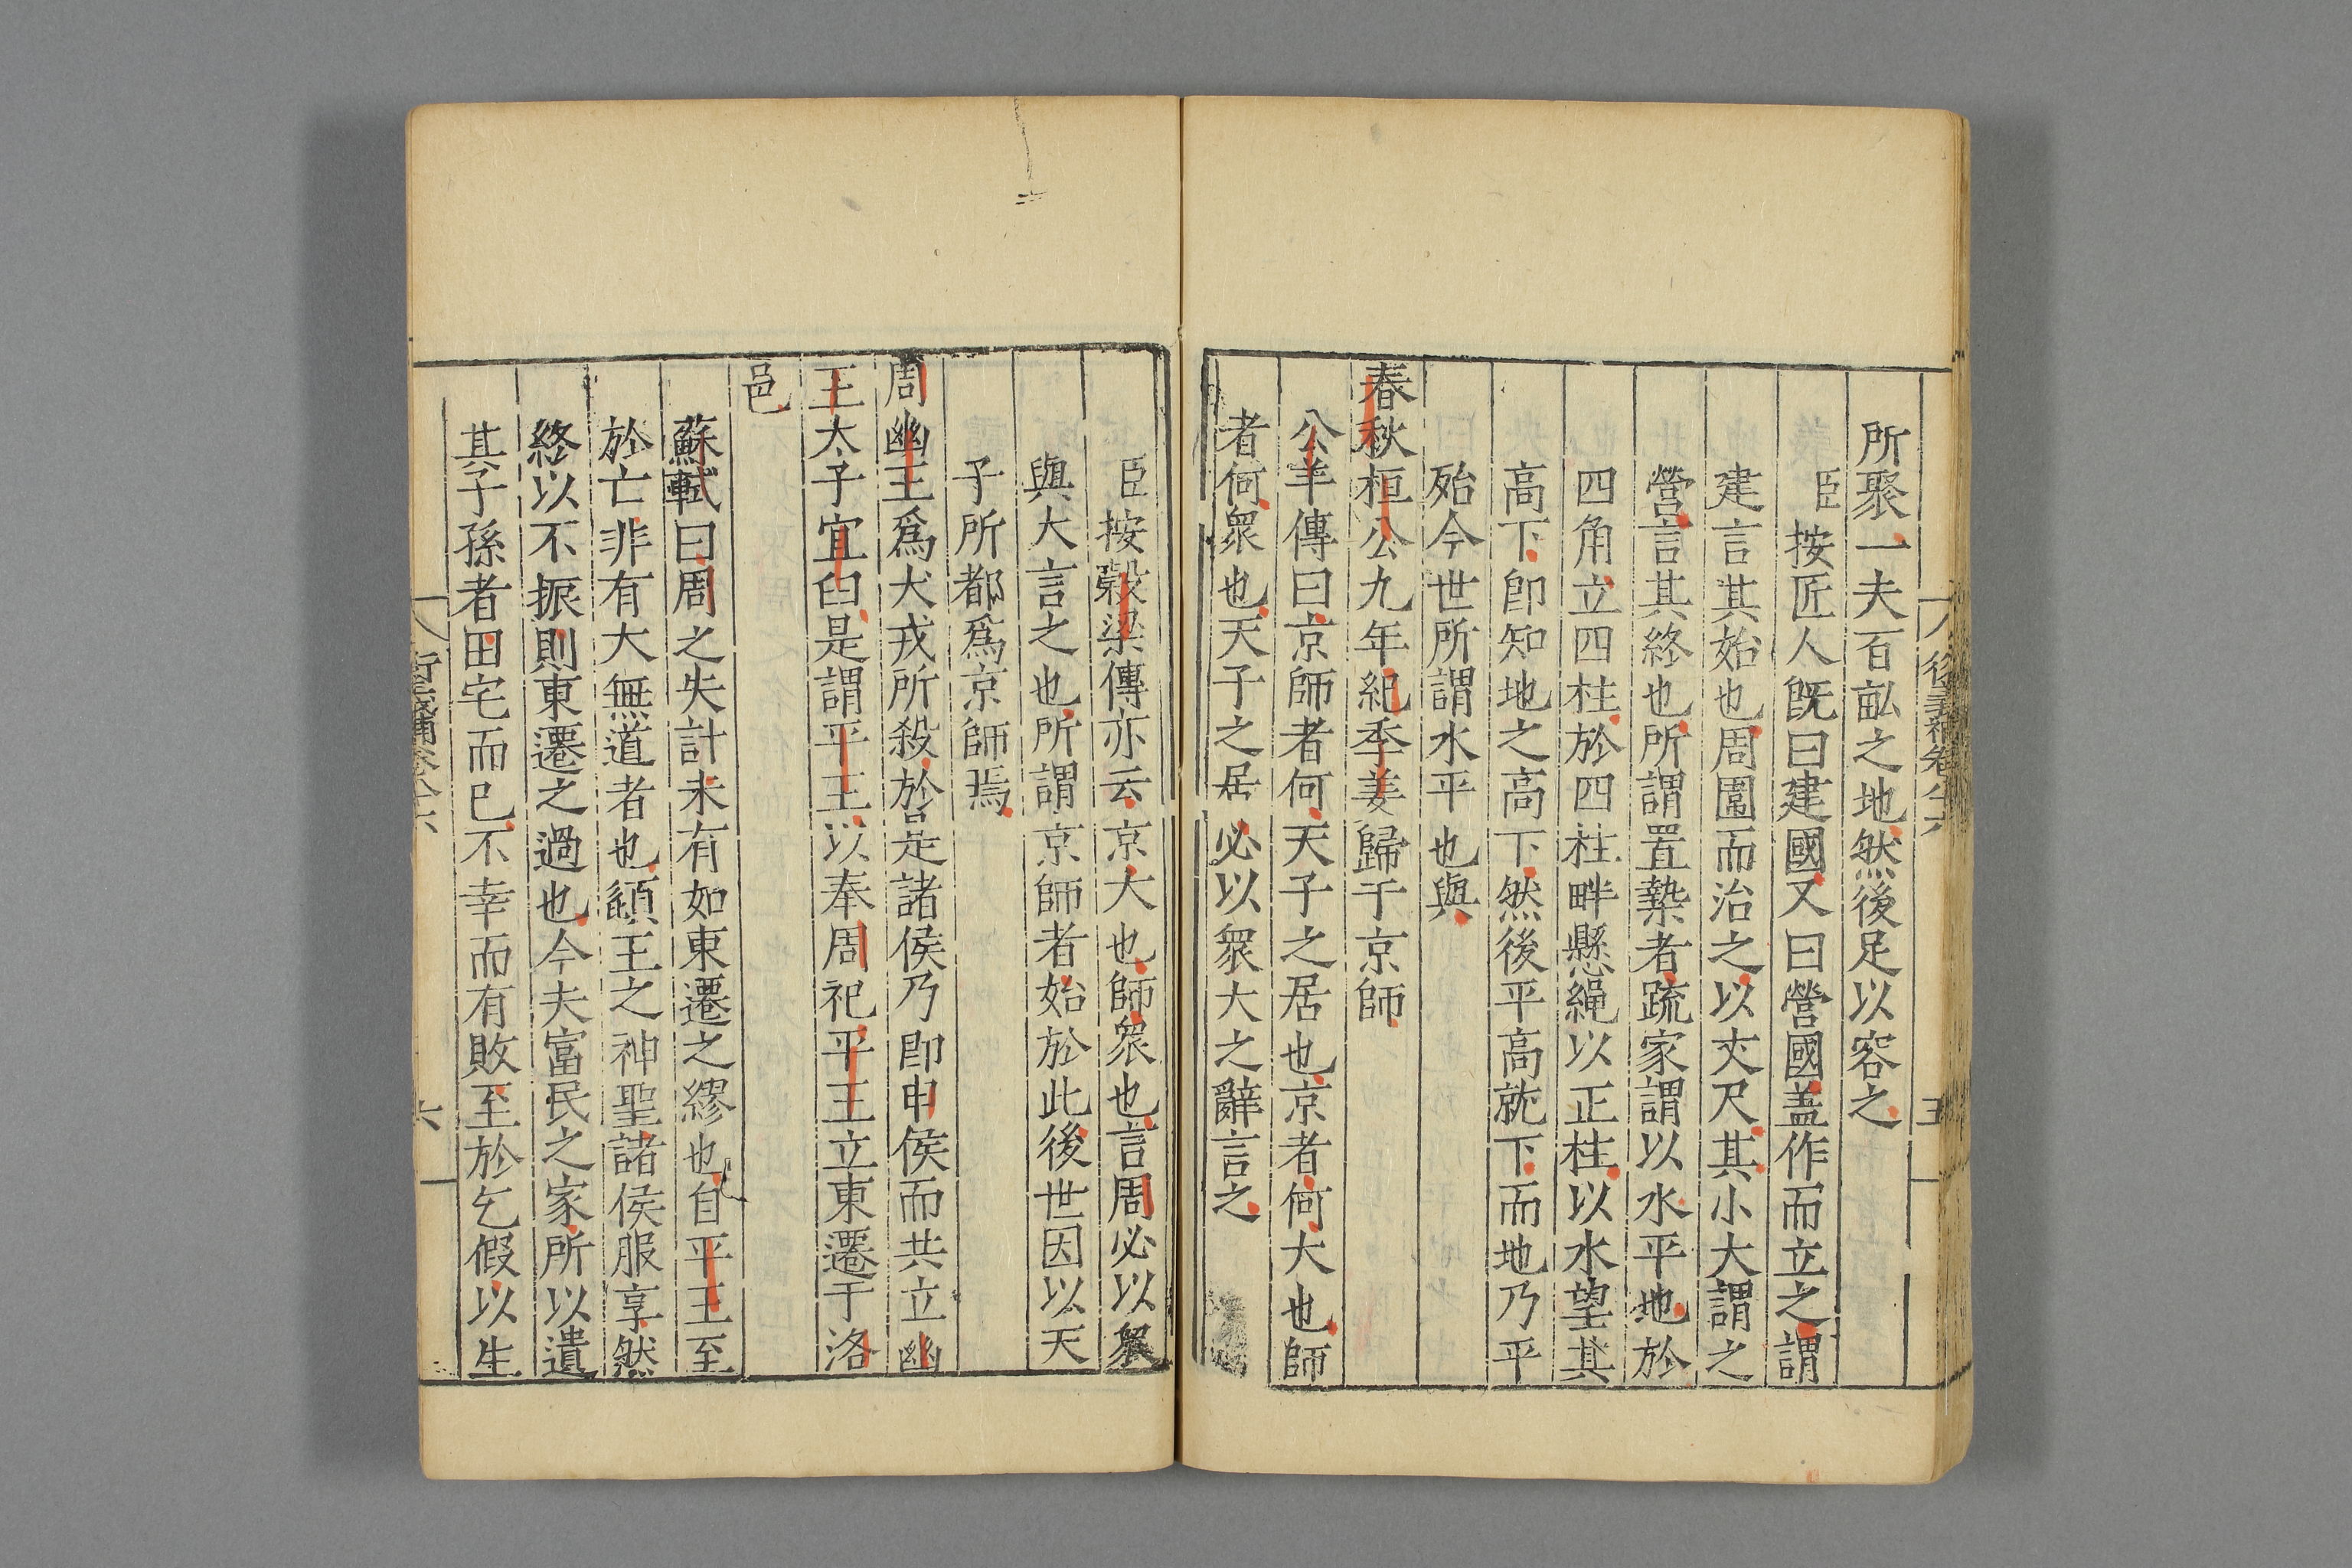 所聚一夫百畝之地然後足以容之
臣按匠人旣曰建國又曰營國盖作而立之謂
建言其始也周圍而治之以丈尺其小大謂之
營言其終也所謂置槷者疏家謂以水平地於
四角立四柱於四柱畔懸繩以正柱以水望其
高下即知地之高下然後平高就下而地乃平
殆今世所謂水平也與
春秋桓公九年紀季姜歸于京師
公羊傳曰京師者何天子之居也京者何大也師
者何衆也天子之居必以衆大之辭言之
臣按穀梁傳亦云京大也師衆也言周必以衆
與大言之也所謂京師者始於此後世因以天
子所都爲京師焉
周幽王爲犬戎所殺於是諸侯乃即申侯而共立幽
王太子宜臼是謂平王以奉周祀平王立東遷于洛
邑
蘇軾曰周之失計未有如東遷之繆也自平王至
於亡非有大無道者也頿王之神聖諸侯服享然
終以不振則東遷之過也今夫富民之家所以遺
其子孫者田宅而已不幸而有敗至於乞假以生
六